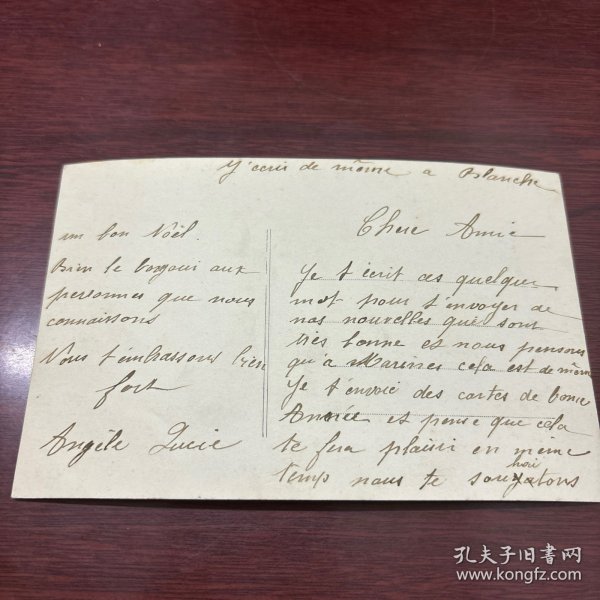 J'ecris de même a Blanche
Chere Amie
Je t'écrit ces quelques
mot pour t'envoyer de
nos nouvelles que sont
très bonne et nous pensons
qu'a Marines cela est de même
Je t'envoie des cartes de bonne
Année et pense que cela
te fera plaisir en même
temp nous te souhaitons
un bon Nôel.
bien le bonjour aux
personnes que nous
connaissons
Nous t'embrassons bien
fort
Angèle Lucie
孔夫子旧书网
www.kongfz.com